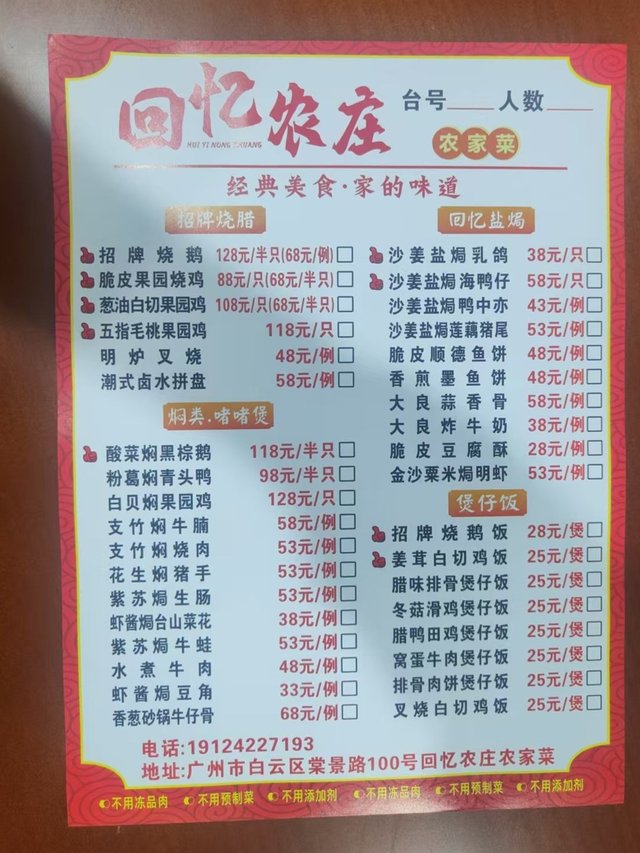 回忆农庄
HUI YI NONG ZHUANG
台号____ 人数____
农家菜
经典美食·家的味道
招牌烧腊
招牌烧鹅 128元/半只(68元/例)
脆皮果园烧鸡 88元/只(68元/半只)
葱油白切果园鸡 108元/只(68元/半只)
五指毛桃果园鸡 118元/只
明炉叉烧 48元/例
潮式卤水拼盘 58元/例
焖类.啫啫煲
酸菜焖黑棕鹅 118元/半只
粉葛焖青头鸭 98元/半只
白贝焖果园鸡 128元/只
支竹焖牛腩 58元/例
支竹焖烧肉 53元/例
花生焖猪手 53元/例
紫苏焗生肠 53元/例
虾酱焗台山菜花 38元/例
紫苏焗牛蛙 53元/例
水煮牛肉 48元/例
虾酱焗豆角 33元/例
香葱砂锅牛仔骨 68元/例
回忆盐焗
沙姜盐焗乳鸽 38元/只
沙姜盐焗海鸭仔 58元/只
沙姜盐焗鸭中亦 43元/例
沙姜盐焗莲藕猪尾 53元/例
脆皮顺德鱼饼 48元/例
香煎墨鱼饼 48元/例
大良蒜香骨 58元/例
大良炸牛奶 38元/例
脆皮豆腐酥 28元/例
金沙粟米焗明虾 53元/例
煲仔饭
招牌烧鹅饭 28元/煲
姜茸白切鸡饭 25元/煲
腊味排骨煲仔饭 25元/煲
冬菇滑鸡煲仔饭 25元/煲
腊鸭田鸡煲仔饭 25元/煲
窝蛋牛肉煲仔饭 25元/煲
排骨肉饼煲仔饭 25元/煲
叉烧白切鸡饭 25元/煲
电话:19124227193
地址:广州市白云区棠景路100号回忆农庄农家菜
不用冻品肉 不用预制菜 不用添加剂 不用冻品肉 不用预制菜 不用添加剂